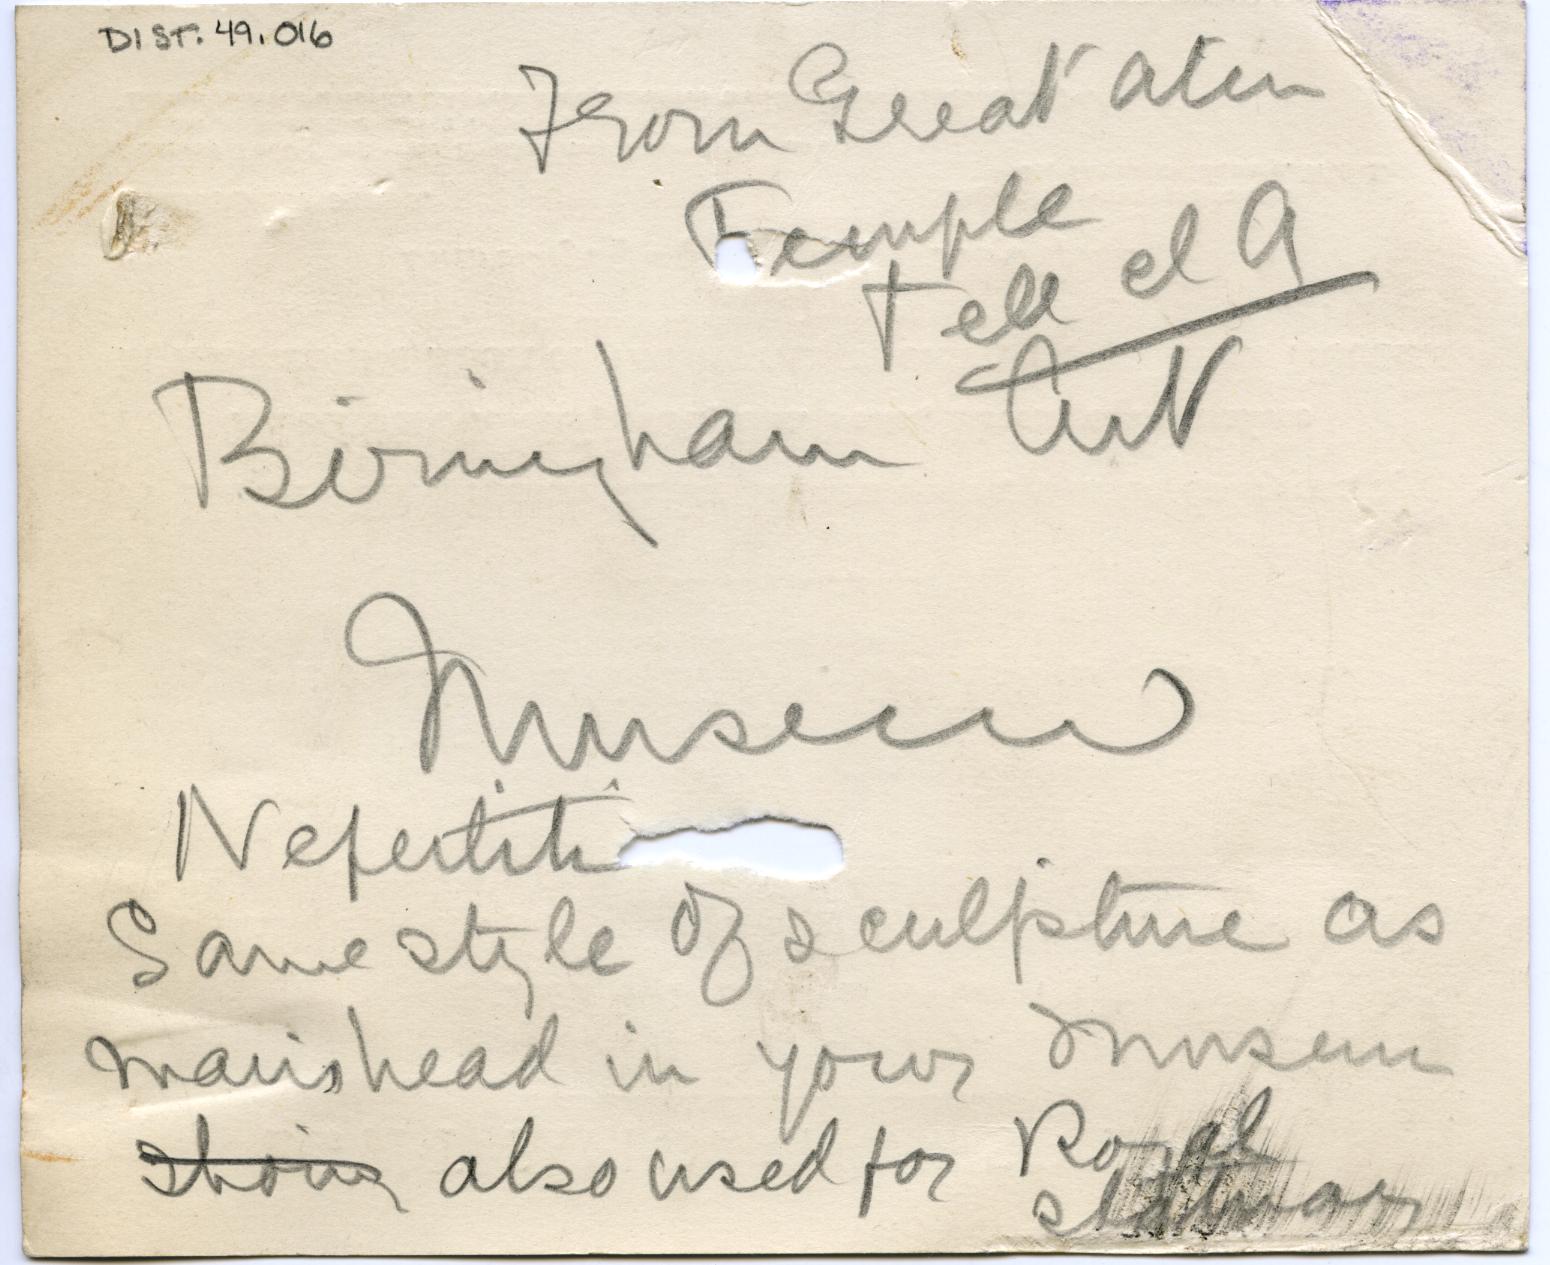 DIST. 49.016
From Great Aten
Temple
Tell el A
Birmingham Art
Museum
Nefertiti
Same style of sculpture as
man's head in your Museum
also used for Royal
statuary